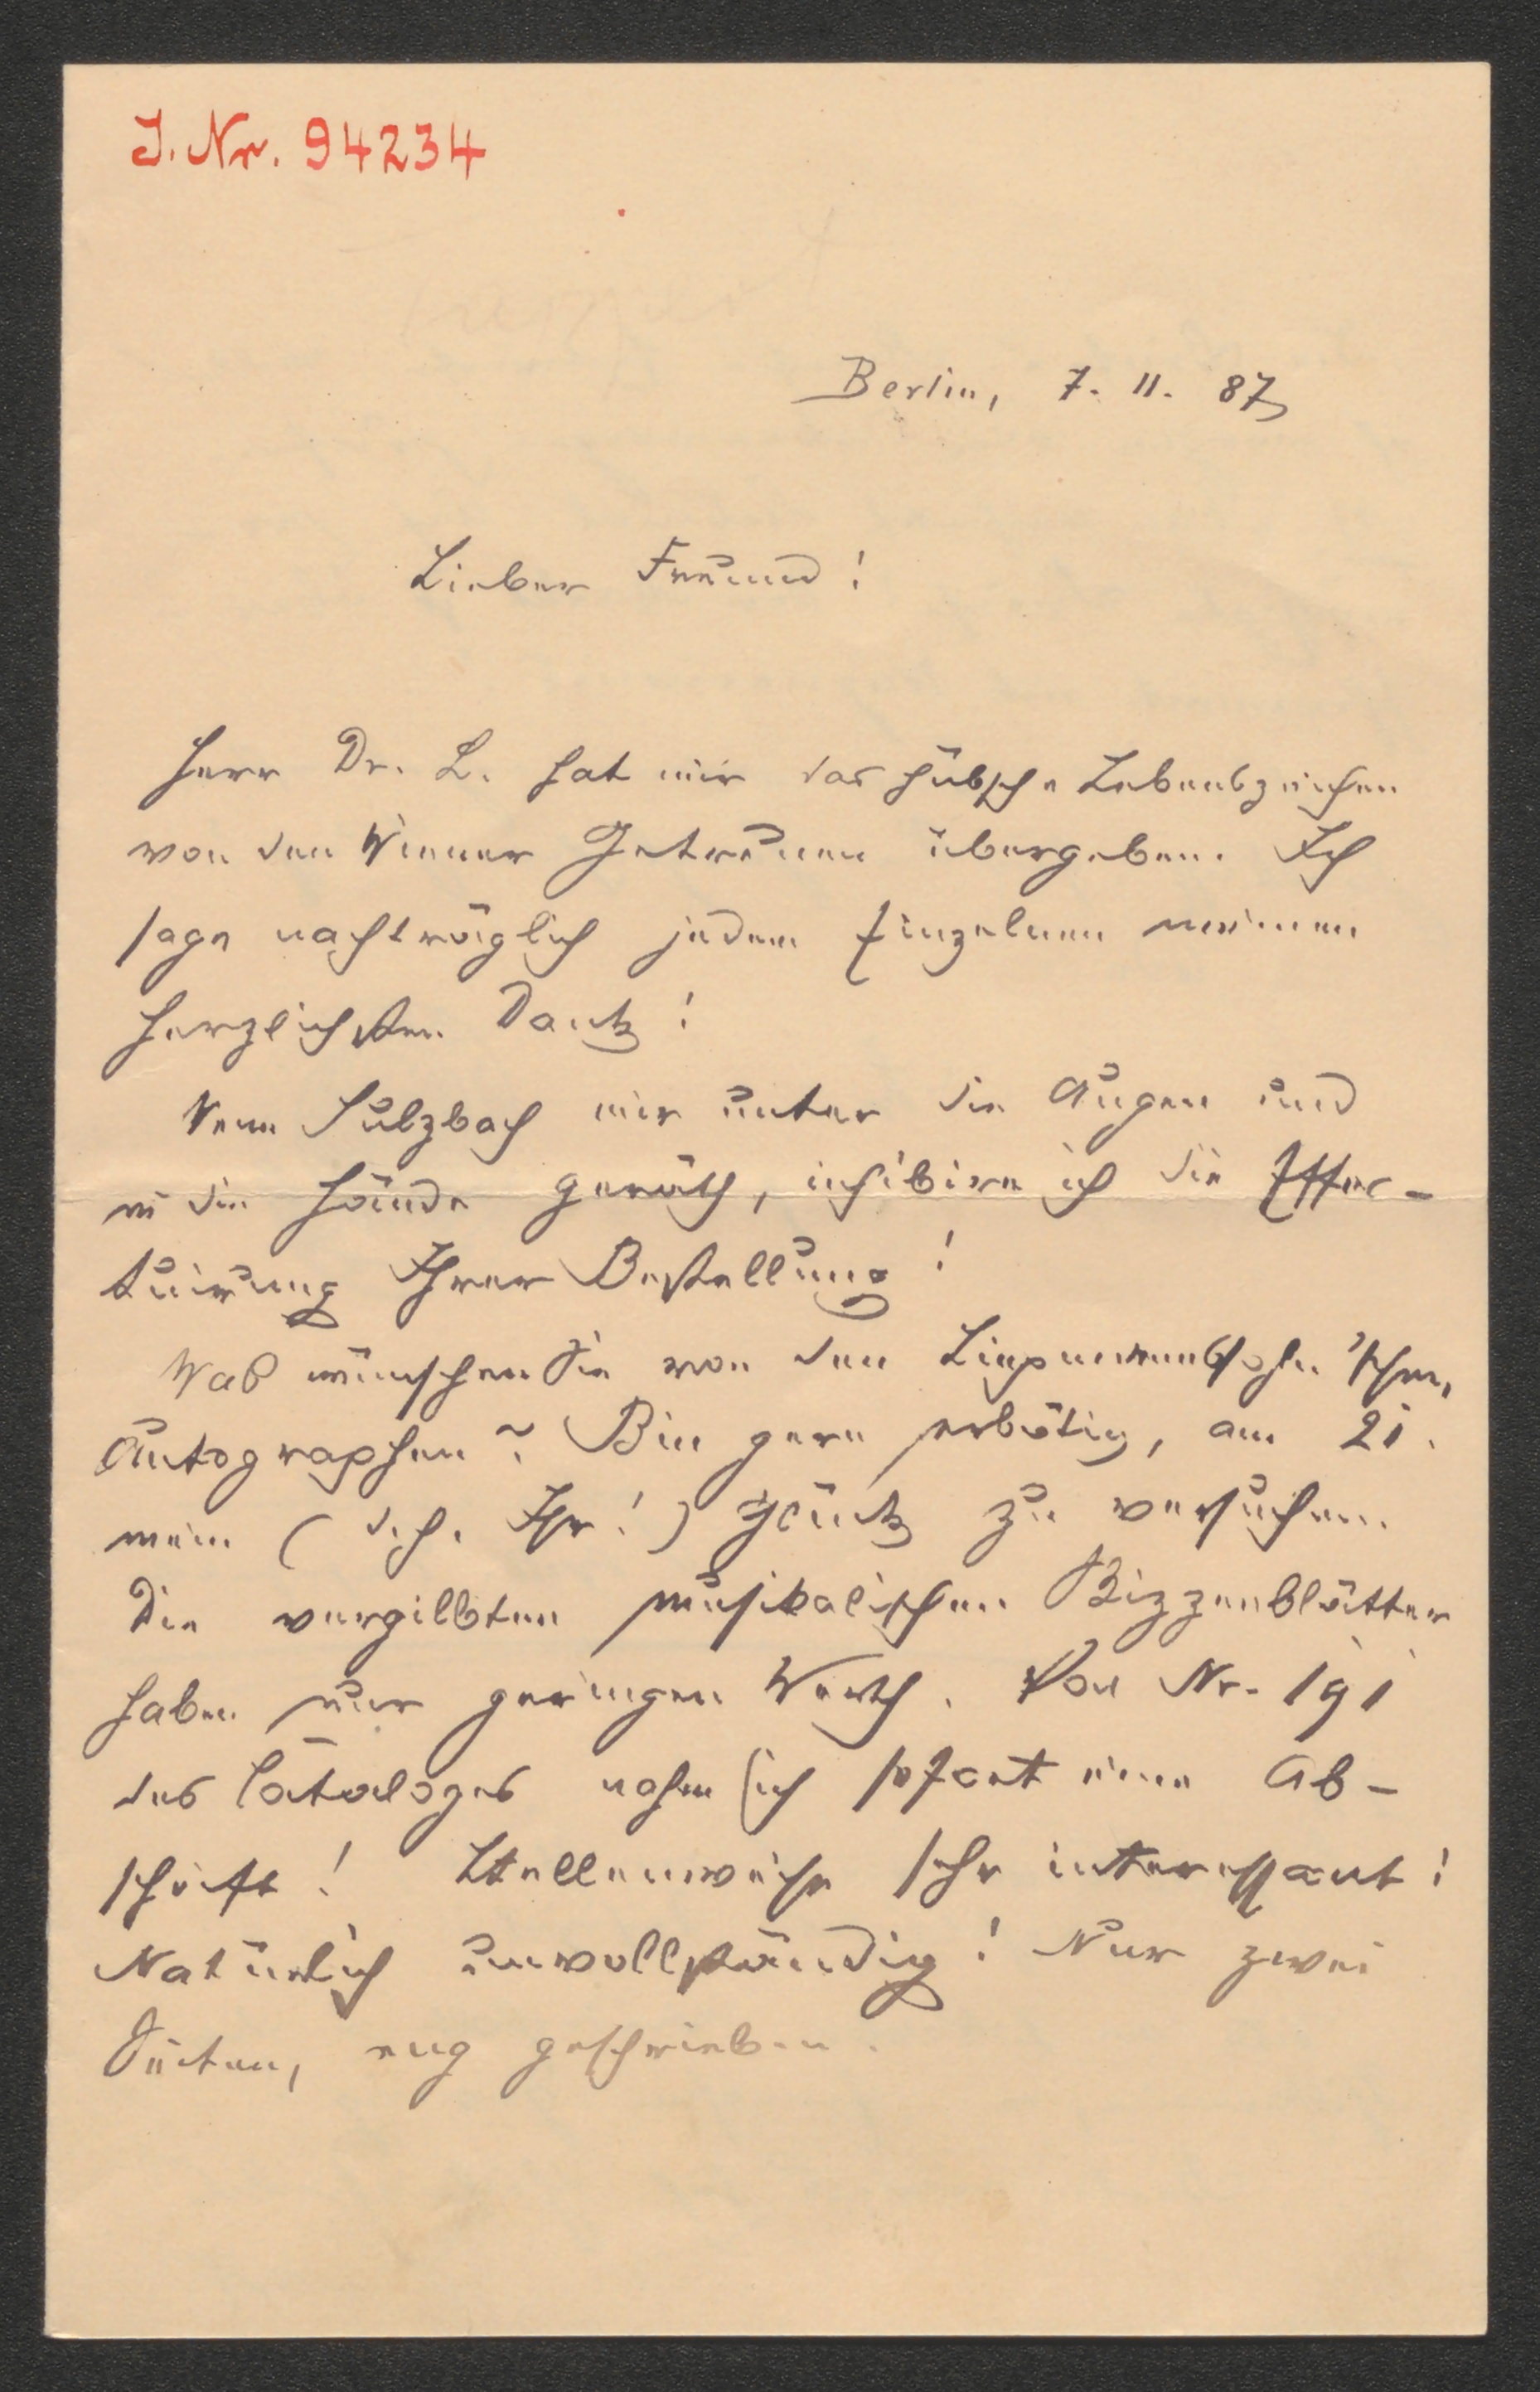 J. Nr. 94234
Berlin, 7. 11. 87
Lieber Freund!
Herr Dr. L. hat mir das hübsche Lebenszeichen
von den Wiener Getreuen übergeben. Ich
sage nachträglich jedem Einzelnen meinen
herzlichsten Dank!
Wenn Sulzbach mir unter die Augen und
in die Hände geräth, inhibire ich die Effec-
tuirung Ihrer Bestellung!
Was wünschen Sie von den Liepmannssohn'schen
Autographen? Bin gern erbötig, am 21.
mein (d. h. Ihr!) Glück zu versuchen.
Die vergilbten musikalischen Skizzenblätter
haben nur geringen Werth. Von Nr. 191
des Cataloges nahm ich sofort eine Ab-
schrift! Stellenweise sehr interessant!
Natürlich unvollständig! Nur zwei
Seiten, eng geschrieben.